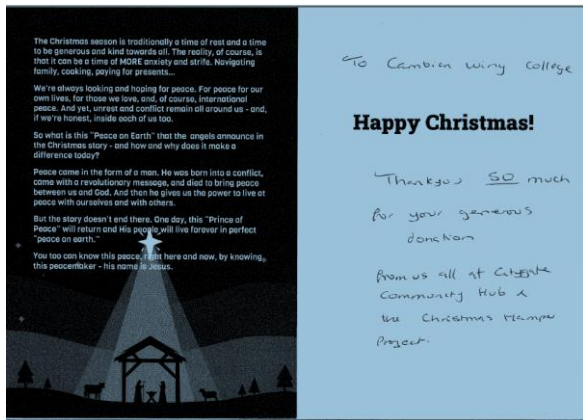 The Christmas season is traditionally a time of rest and a time
to be generous and kind towards all. The reality, of course, is
that it can be a time of MORE anxiety and strife. Navigating
family, cooking, paying for presents...
We're always looking and hoping for peace. For peace for our
own lives, for those we love, and, of course, international
peace. And yet, unrest and conflict remain all around us - and,
if we're honest, inside each of us too.
So what is this "Peace on Earth" that the angels announce in
the Christmas story - and how and why does it make a
difference today?
Peace came in the form of a man. He was born into a conflict,
came with a revolutionary message, and died to bring peace
between us and God. And then he gives us the power to live at
peace with ourselves and with others.
But the story doesn't end there. One day, this "Prince of
Peace" will return and His people will live forever in perfect
"peace on earth."
You too can know this peace, right here and now, by knowing
this peacemaker - his name is Jesus.
To Cambian Wing College
Happy Christmas!
Thankyou SO much
for your generous
donation
from us all at Citygate
Community Hub &
the Christmas Hamper
Project.